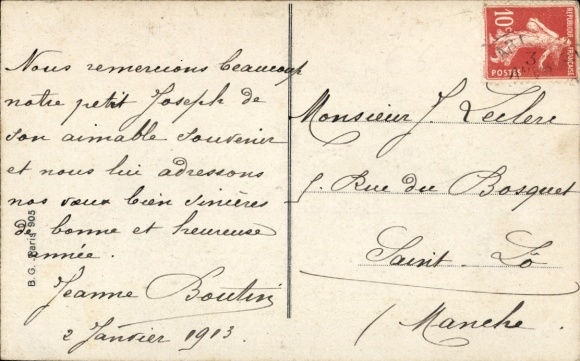 Nous remercions beaucoup
notre petit Joseph de
son aimable souvenir
et nous lui adressons
nos vœux bien sincères
de bonne et heureuse
année.
Jeanne Boutin
2 Janvier 1913.
B. G. Paris 905
10c
REPUBLIQUE FRANÇAISE
POSTES
Monsieur J. Leclerc
5. Rue du Bosquet
Saint-Lô
(Manche.